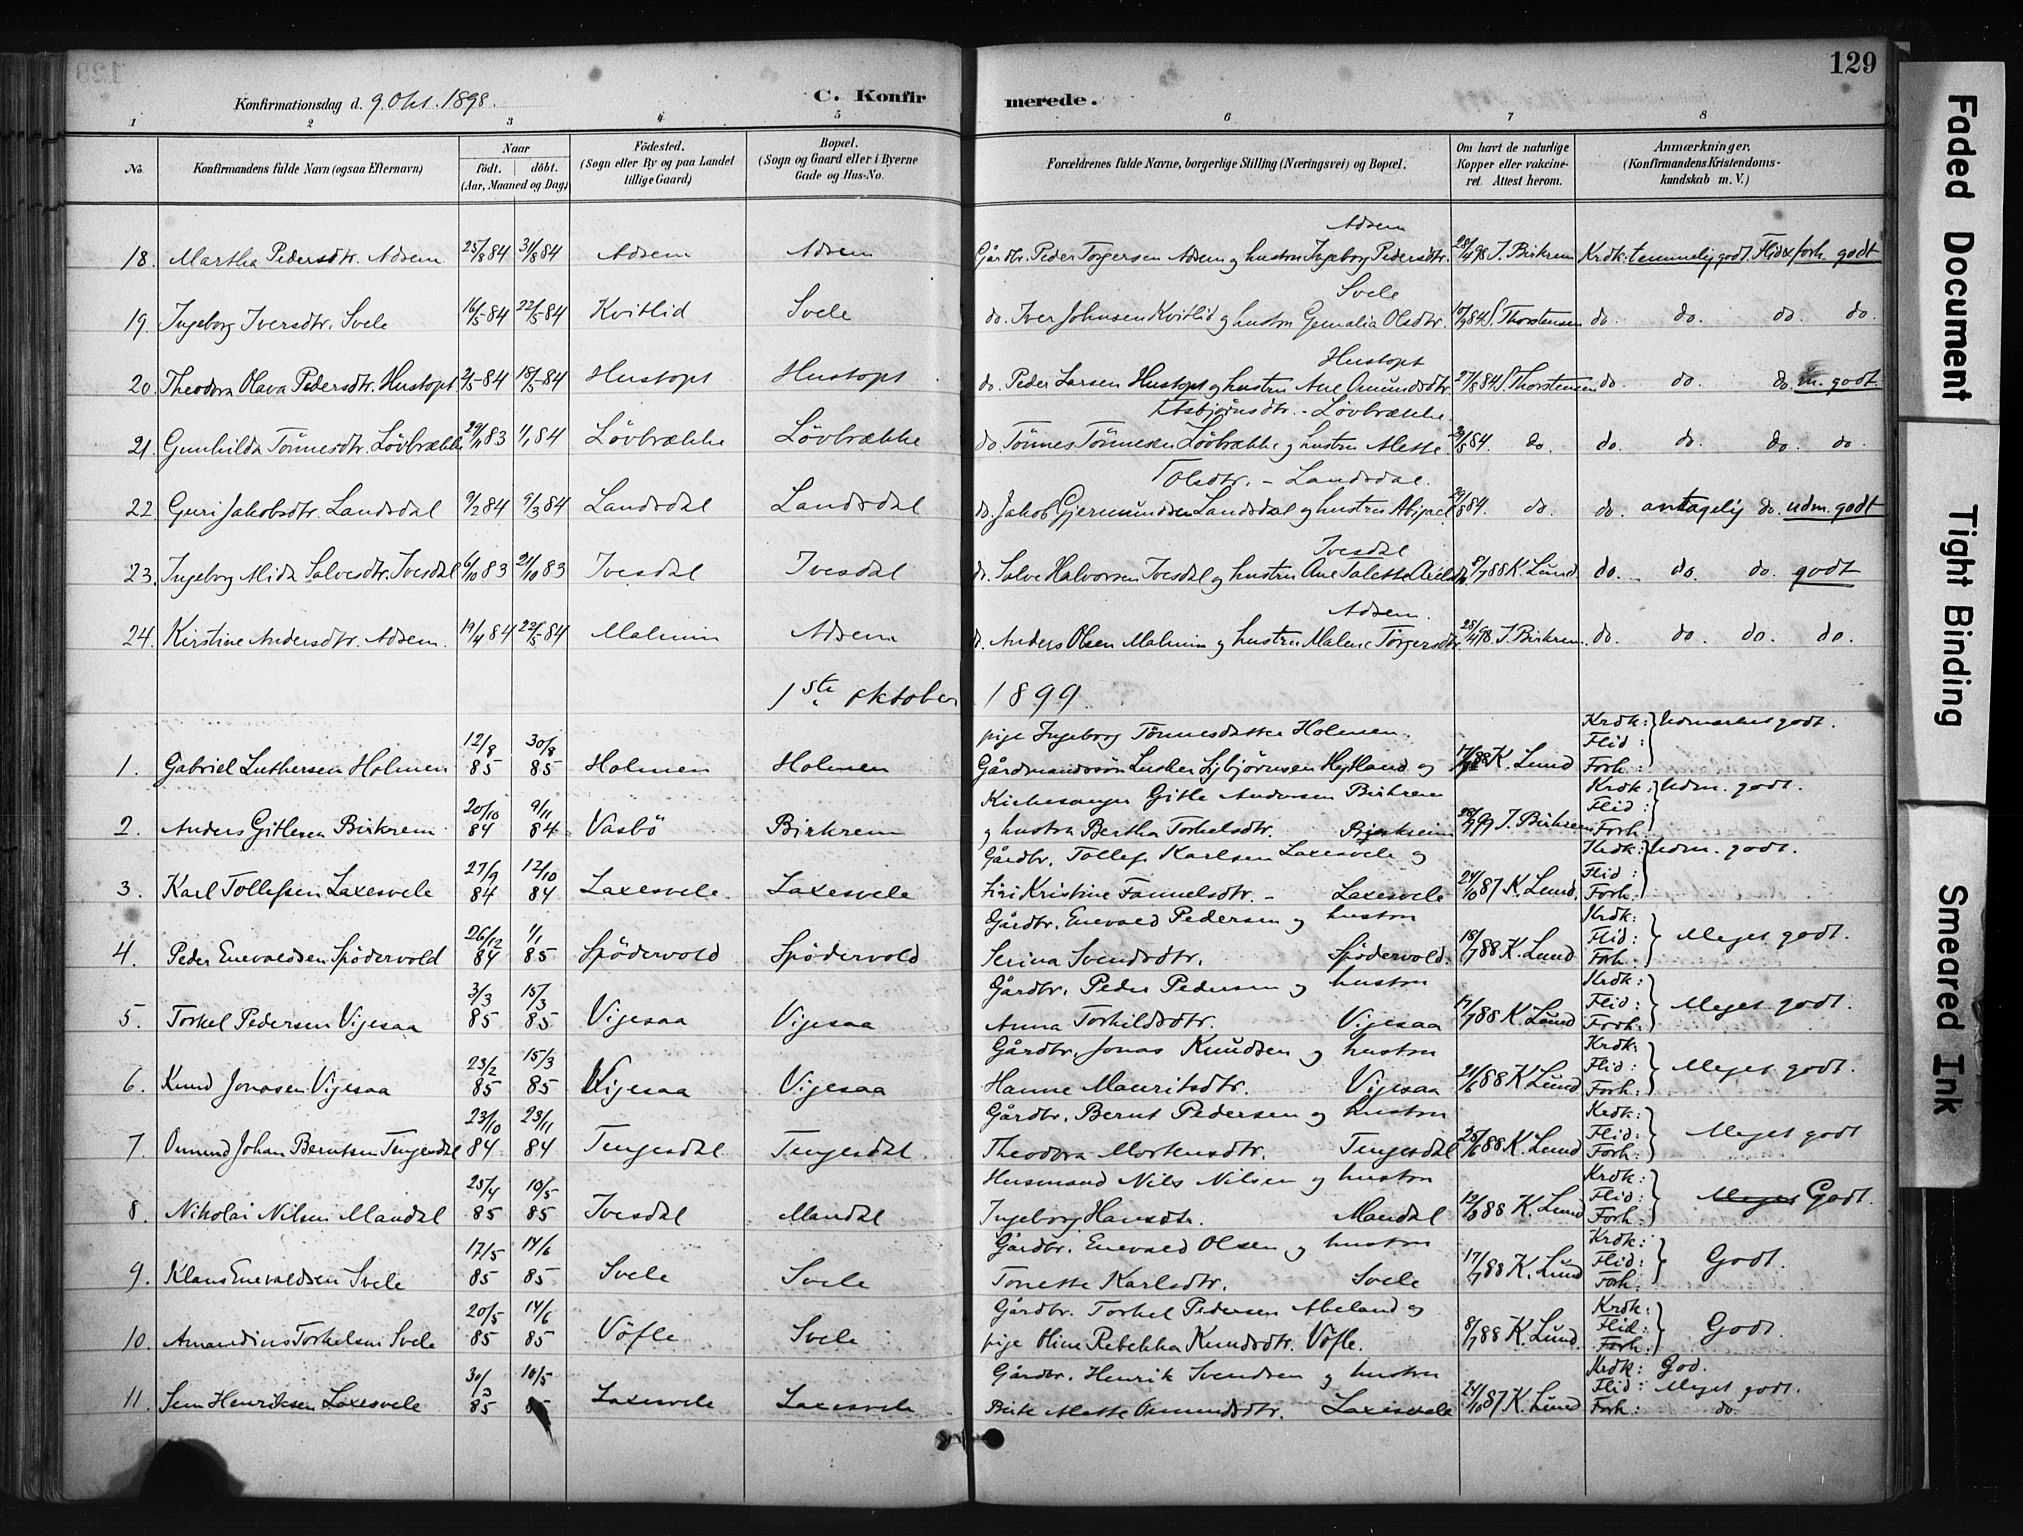 129
Konfirmationsdag d. 9. Okt. 1898.
C. Konfirmerede.
1 2 3 4 5 6 7 8
No. Konfirmandens fulde Navn (ogsaa Efternavn) Naar födt. döbt. (Aar, Maaned og Dag) Födested. (Sogn eller By og paa Landet tillige Gaard) Bopæl. (Sogn og Gaard eller i Byerne Gade og Hus-No. Forældrenes fulde Navne, borgerlige Stilling (Næringsvei) og Bopæl. Om havt de naturlige Kopper eller vakcineret. Attest herom. Anmærkninger. (Konfirmandens Kristendomskundskab m. V.)
Adsem
18. Martha Pedersdtr. Adsem 25/8 84 31/8 84 Adsem Adsem Gårdbr. Peder Torgersen Adsem og hustru Ingeborg Pedersdtr. 28/4 98 J. Birkrem Krdk: temmelig godt. Flid & forh. godt
Svele
19. Ingeborg Iversdtr. Svele 16/5 84 22/5 84 Kvitlid Svele do. Iver Johnsen Kvitlid og hustru Olsdtr. 84 S. Thorstensen do. do. do. do.
Hustopt
20. Theodora Olava Pedersdtr. Hustopt 2/5 84 18/5 84 Hustopt Hustopt do. Peder Larsen Hustopt og hustru Ane Amundsdtr. 27/8 84 S. Thorstensen do. do. do. m. godt
Esbjørnsdtr. - Lövbrække
21. Gunhilda Tönnesdtr. Lövbrække 29/11 83 1/1 84 Lövbrække Lövbrække do. Tönnes Tönnesen Lövbrække og hustru Mette 84. do. do. do. do. do.
Olsdtr. - Landsdal.
22. Guri Jakobsdtr. Landsdal 9/2 84 9/3 84 Landsdal Landsdal do. Jakob Gjermundsen Landsdal og hustru Abigael 29/8 84. do. do. antagelig do. udm. godt
Ivesdal
23. Ingeborg Alida Salvesdtr. Ivesdal 6/10 83 21/10 83 Ivesdal Ivesdal do. Salve Halvorsen Ivesdal og hustru Ane Talette 9/7 88 K. Lund do. do. do. godt
Adsem.
24. Kirstine Andersdtr. Adsem. 19/4 84 22/5 84 Malmin Adsem do. Anders Olsen Malmin og hustru Malene Torgersdtr. 28/4 98. J. Birkrem. do. do. do. do.
1ste oktober 1899.
pige Ingeborg Tönnesdatter Holmen. Krdk: Udmærket godt.
12/8 30/8 Flid:
1. Gabriel Luthersen Holmen 85 85 Holmen Holmen Gårdmandssön Luther Esbjörnsen Hytland og 88 K. Lund Forh:
20/10 9/11 Kirkesanger Gitle Andersen Birkrem Krdk: Udm. godt.
Flid:
2. Anders Gitlesen Birkrem 84 84 Vasbö Birkrem og hustru Bertha Torkelsdtr. Bjerkreim 28/9 99 J. Birkrem Forh.
27/9 12/10 Gårdbr. Tollef Karlsen Laxesvele og Krdk: Udm. godt.
Flid:
3. Karl Tollefsen Laxesvele 84 84 Laxesvele Laxesvele Siri Kristine Samuelsdtr. - Laxesvele 24/10 87 K. Lund. Forh.
26/12 1/1 Gårdbr. Enevald Pedersen og hustru Krdk:
Flid: Meget godt.
4. Peder Enevaldsen Spödervold 84 85 Spödervold Spödervold Serina Svendsdtr. Spödervold. 18/7 88 K. Lund Forh.
3/3 15/3 Gårdbr. Peder Pedersen og hustru Krdk:
Flid: Meget godt.
5. Torkel Pedersen Vigesaa 85 85 Vigesaa Vigesaa Anna Torkildsdtr. Vigesaa 17/7 88 K. Lund Forh.
23/2 15/3 Gårdbr. Jonas Knudsen og hustru Krdk:
Flid: Meget godt.
6. Knud Jonasen Vigesaa 85 85 Vigesaa Vigesaa Hanne Mauritsdtr. Vigesaa 21/6 88 K. Lund Forh:
23/10 23/11 Gårdbr. Bernt Pedersen og hustru Krdk:
Flid: Meget godt
7. Omund Johan Berntsen Tengesdal 84 84 Tengesdal Tengesdal. Theodora Mortensdtr. Tengesdal 25/6 88 K. Lund Forh.
25/4 10/5 Husmand Nils Nilsen og hustru Krdk:
Flid: Meget Godt.
8. Nikolai Nilsen Mandal 85 85 Ivesdal Mandal Ingeborg Hansdtr. Mandal 88 K. Lund Forh:
17/5 14/6 Gårdbr. Enevald Olsen og hustru Krdk:
Flid: Godt.
9. Klaus Enevaldsen Svele 85 85 Svele Svele Tonette Karlsdtr. Svele 17/7 88 K. Lund Forh.
20/5 14/6 Gårdbr. Torkel Pedersen Abeland og Krdk:
Flid: Godt.
10. Amandius Torkelsen Svele 85 85 Vöfle Svele pige Oline Rebekka Knudsdtr. Vöfle. 8/7 88 K. Lund. Forh:
30/3 10/5 Gårdbr. Henrik Svendsen og hustru Krdk: God.
Flid: Meget godt.
11. Sem Henriksen Laxesvele 85 85 Laxesvele Laxesvele Berte Mette Omundsdtr. Laxesvele 24/10 87 K. Lund Forh: do.
Faded Document
Tight Binding
Smeared Ink